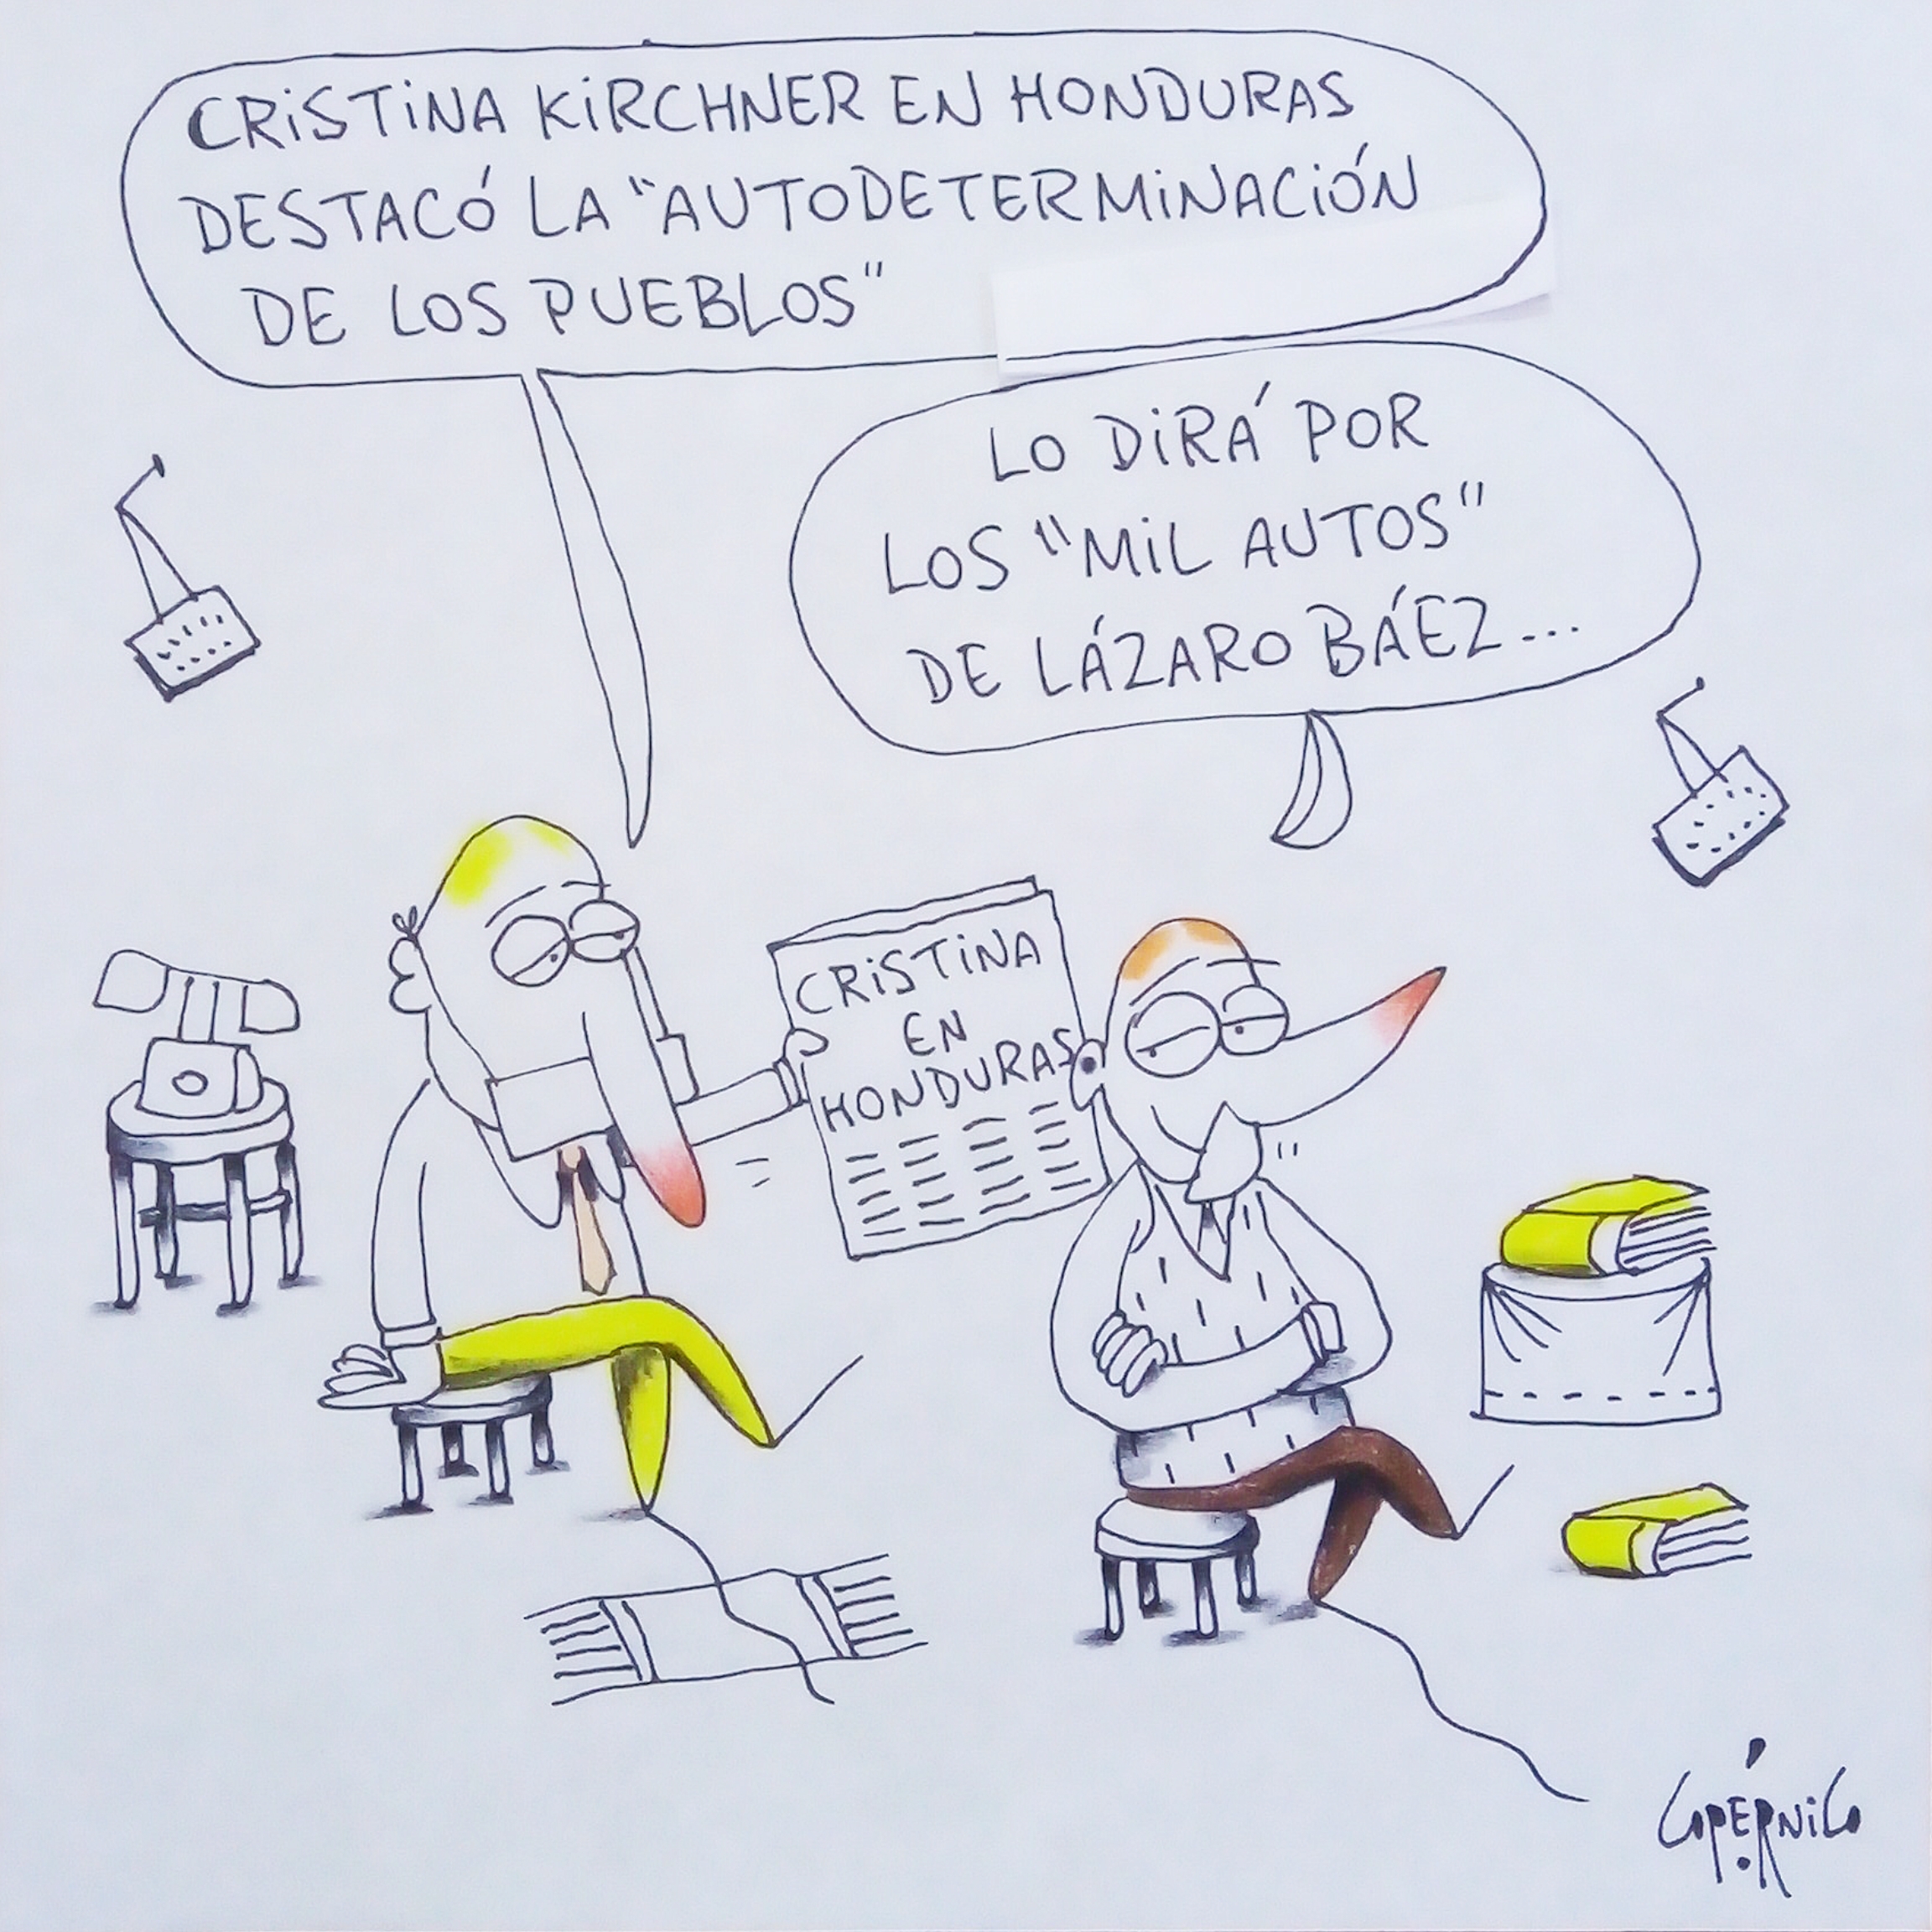 CRiSTiNA KiRCHNER EN HONDURAS
DESTACÓ LA "AUTODETERMiNACiÓN
DE LOS PUEBLOS"
LO DiRÁ POR
LOS "MiL AUTOS"
DE LÁZARO BÁEZ...
CRiSTiNA
EN
HONDURAS
COPÉRNiCO